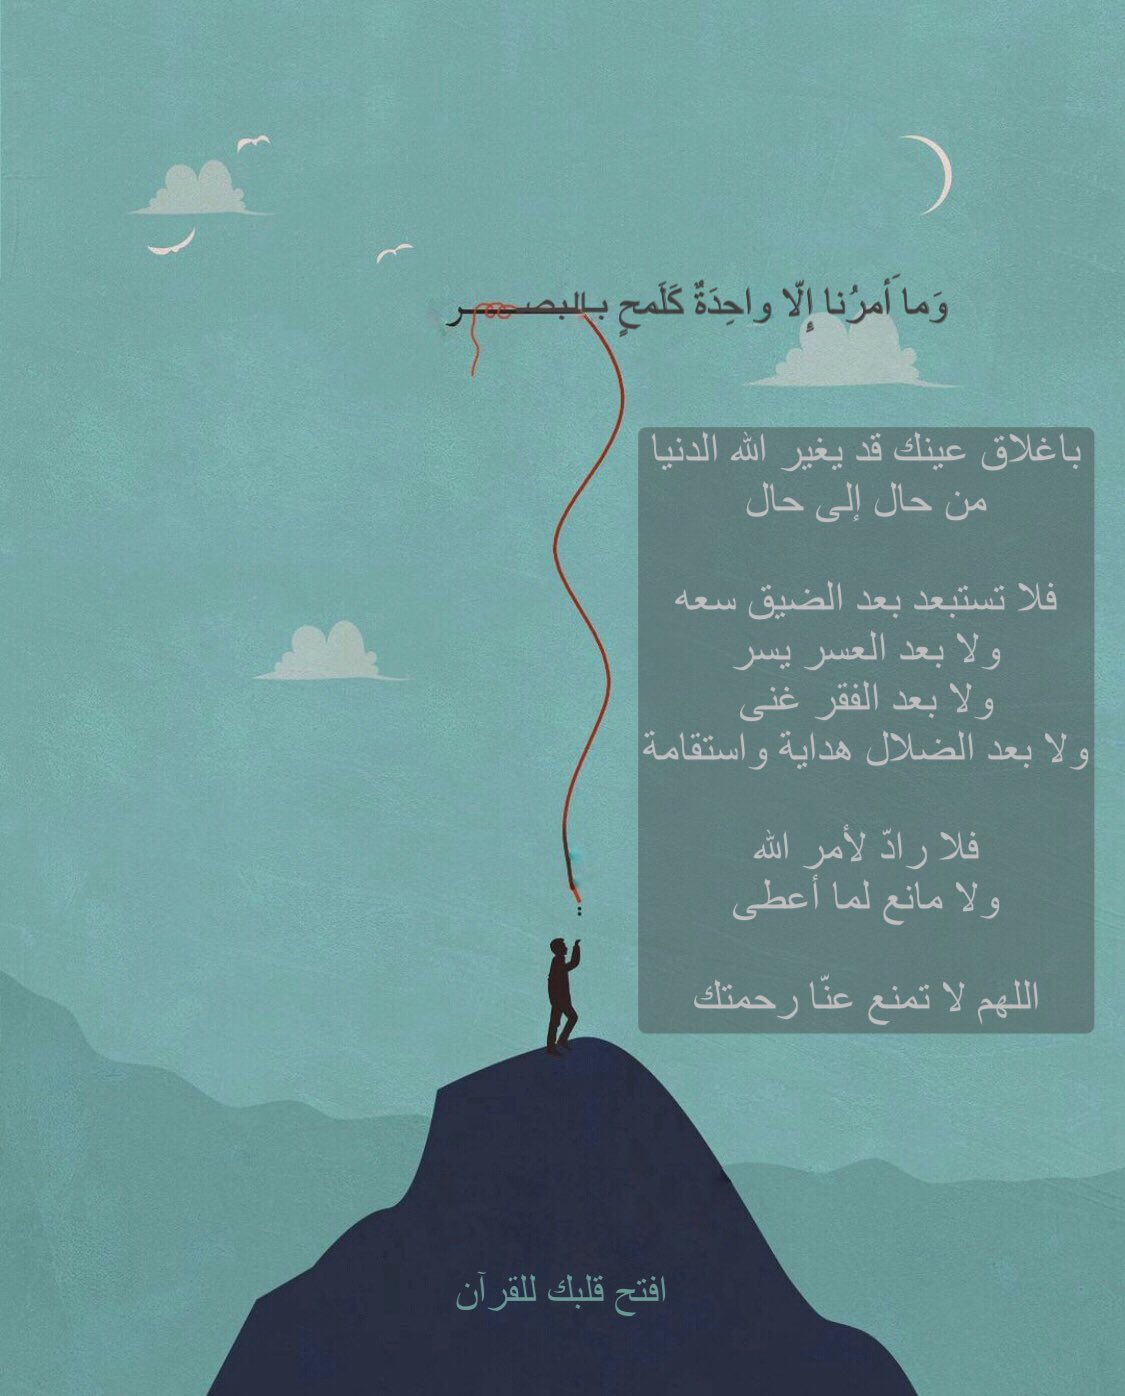 وَما أَمرُنا إِلّا واحِدَةٌ كَلَمحٍ بـالبصـــــر
باغلاق عينك قد يغير الله الدنيا
من حال إلى حال
فلا تستبعد بعد الضيق سعه
ولا بعد العسر يسر
ولا بعد الفقر غنى
ولا بعد الضلال هداية واستقامة
فلا رادّ لأمر الله
ولا مانع لما أعطى
اللهم لا تمنع عنّا رحمتك
افتح قلبك للقرآن